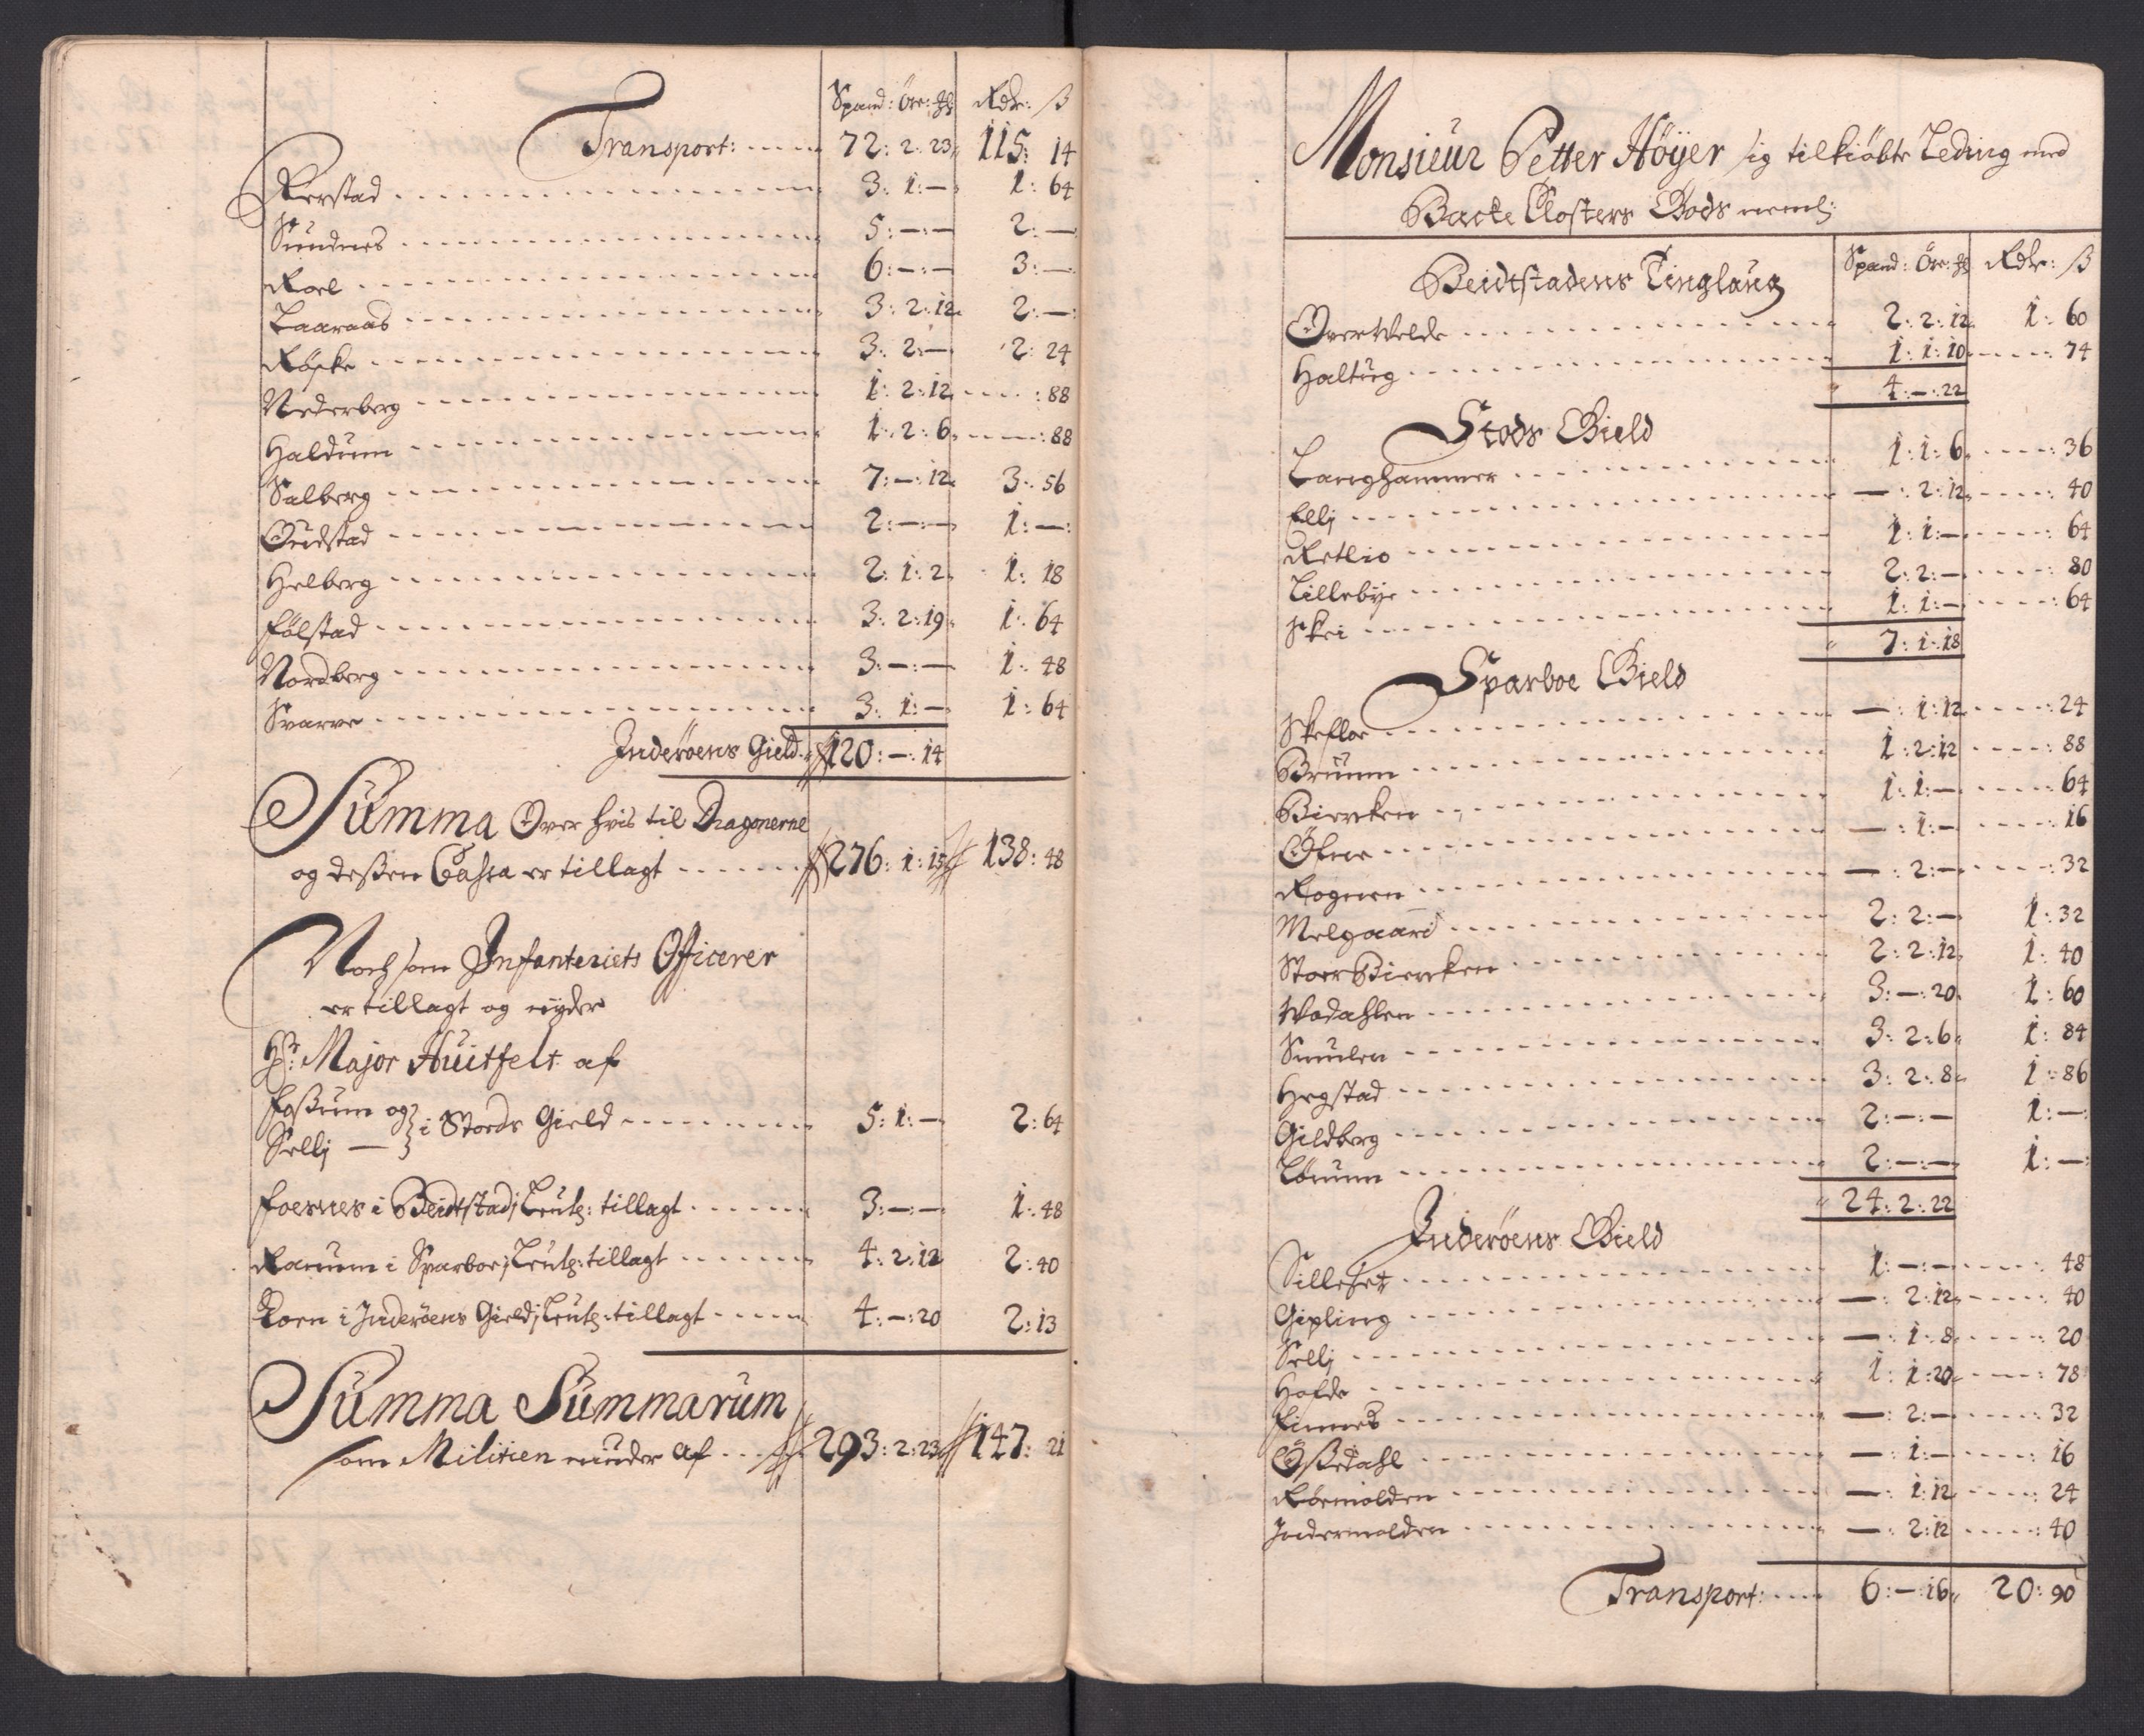 Spand: Öre: ₰ Rdr: ß
Transport: 72: 2: 23 115: 14
Rerstad 3: 1: — 1: 64
Sundnes 5: —: — 2: —
Roel 6: —: — 3: —
Laaraas 3: 2: 12 2: —
Røske 3: 2: — 2: 24
Nederberg 1: 2: 12 : 88
Haldum 1: 2: 6 : 88
Salberg 7: —: 12 3: 56
Oudstad 2: —: — 1: —
Helberg 2: 1: 2 1: 18
Følstad 3: 2: 19 1: 64
Nordberg 3: —: — 1: 48
Svarve 3: 1: — 1: 64
Inderøens Gield 120: —: 14
Summa Over hvis til Dragonerne
og deßen Cassa er tillagt 276: 1: 15 138: 48
Noch som Infanteriets Officerer
er tillagt og nyder
Hr: Major Huitfelt af
Foßum og
Sellj — } i Stords Gield 5: 1: — 2: 64
Foesnes i Beidtstad, Leut: tillagt 3: —: — 1: 48
Ranum i Sparboe, Leut: tillagt 4: 2: 12 2: 40
Korn i Inderøens Gield, Leut: tillagt 4: —: 20 2: 13
Summa Summarum
som Militien niuder af 293: 2: 23 147: 21
Monsieur Petter Höyer sig tilkiøbte Leding med
Backe Closters Gods neml:
Beidtstadens Tinglaug Spand: Öre: ₰ Rdr: ß
OverWelde 2: 2: 12 1: 60
Haltug 1: 1: 10 : 74
4: —: 22
Stods Gield
Langhammer 1: 1: 6 : 36
Ellj —: 2: 12 : 40
Retlio 1: 1: — : 64
Lillebye 2: 2: — : 80
Skei 1: 1: — : 64
7: 1: 18
Sparboe Gield
Skefloe —: 1: 12 : 24
Bruum 1: 2: 12 : 88
Biercken 1: 1: — : 64
Øfne —: 1: — : 16
Rognen —: 2: — : 32
Melgaard 2: 2: — 1: 32
StoerBiercken 2: 2: 12 1: 40
Wodahlen 3: —: 20 1: 60
Smulen 3: 2: 6 1: 84
Hegstad 3: 2: 8 1: 86
Gildberg 2: —: — 1: —
Lørum 2: —: — 1: —
24: 2: 22
Inderøens Gield
Silleset 1: —: — : 48
Gipling —: 2: 12 : 40
Sellj —: 1: 8 : 20
Hofde 1: 1: 20 : 78
Finnes —: 2: — : 32
Ößedahl —: 1: — : 16
Rørmolden —: 1: 12 : 24
Indermolden —: 2: 12 : 40
Transport: 6: —: 16 20: 90